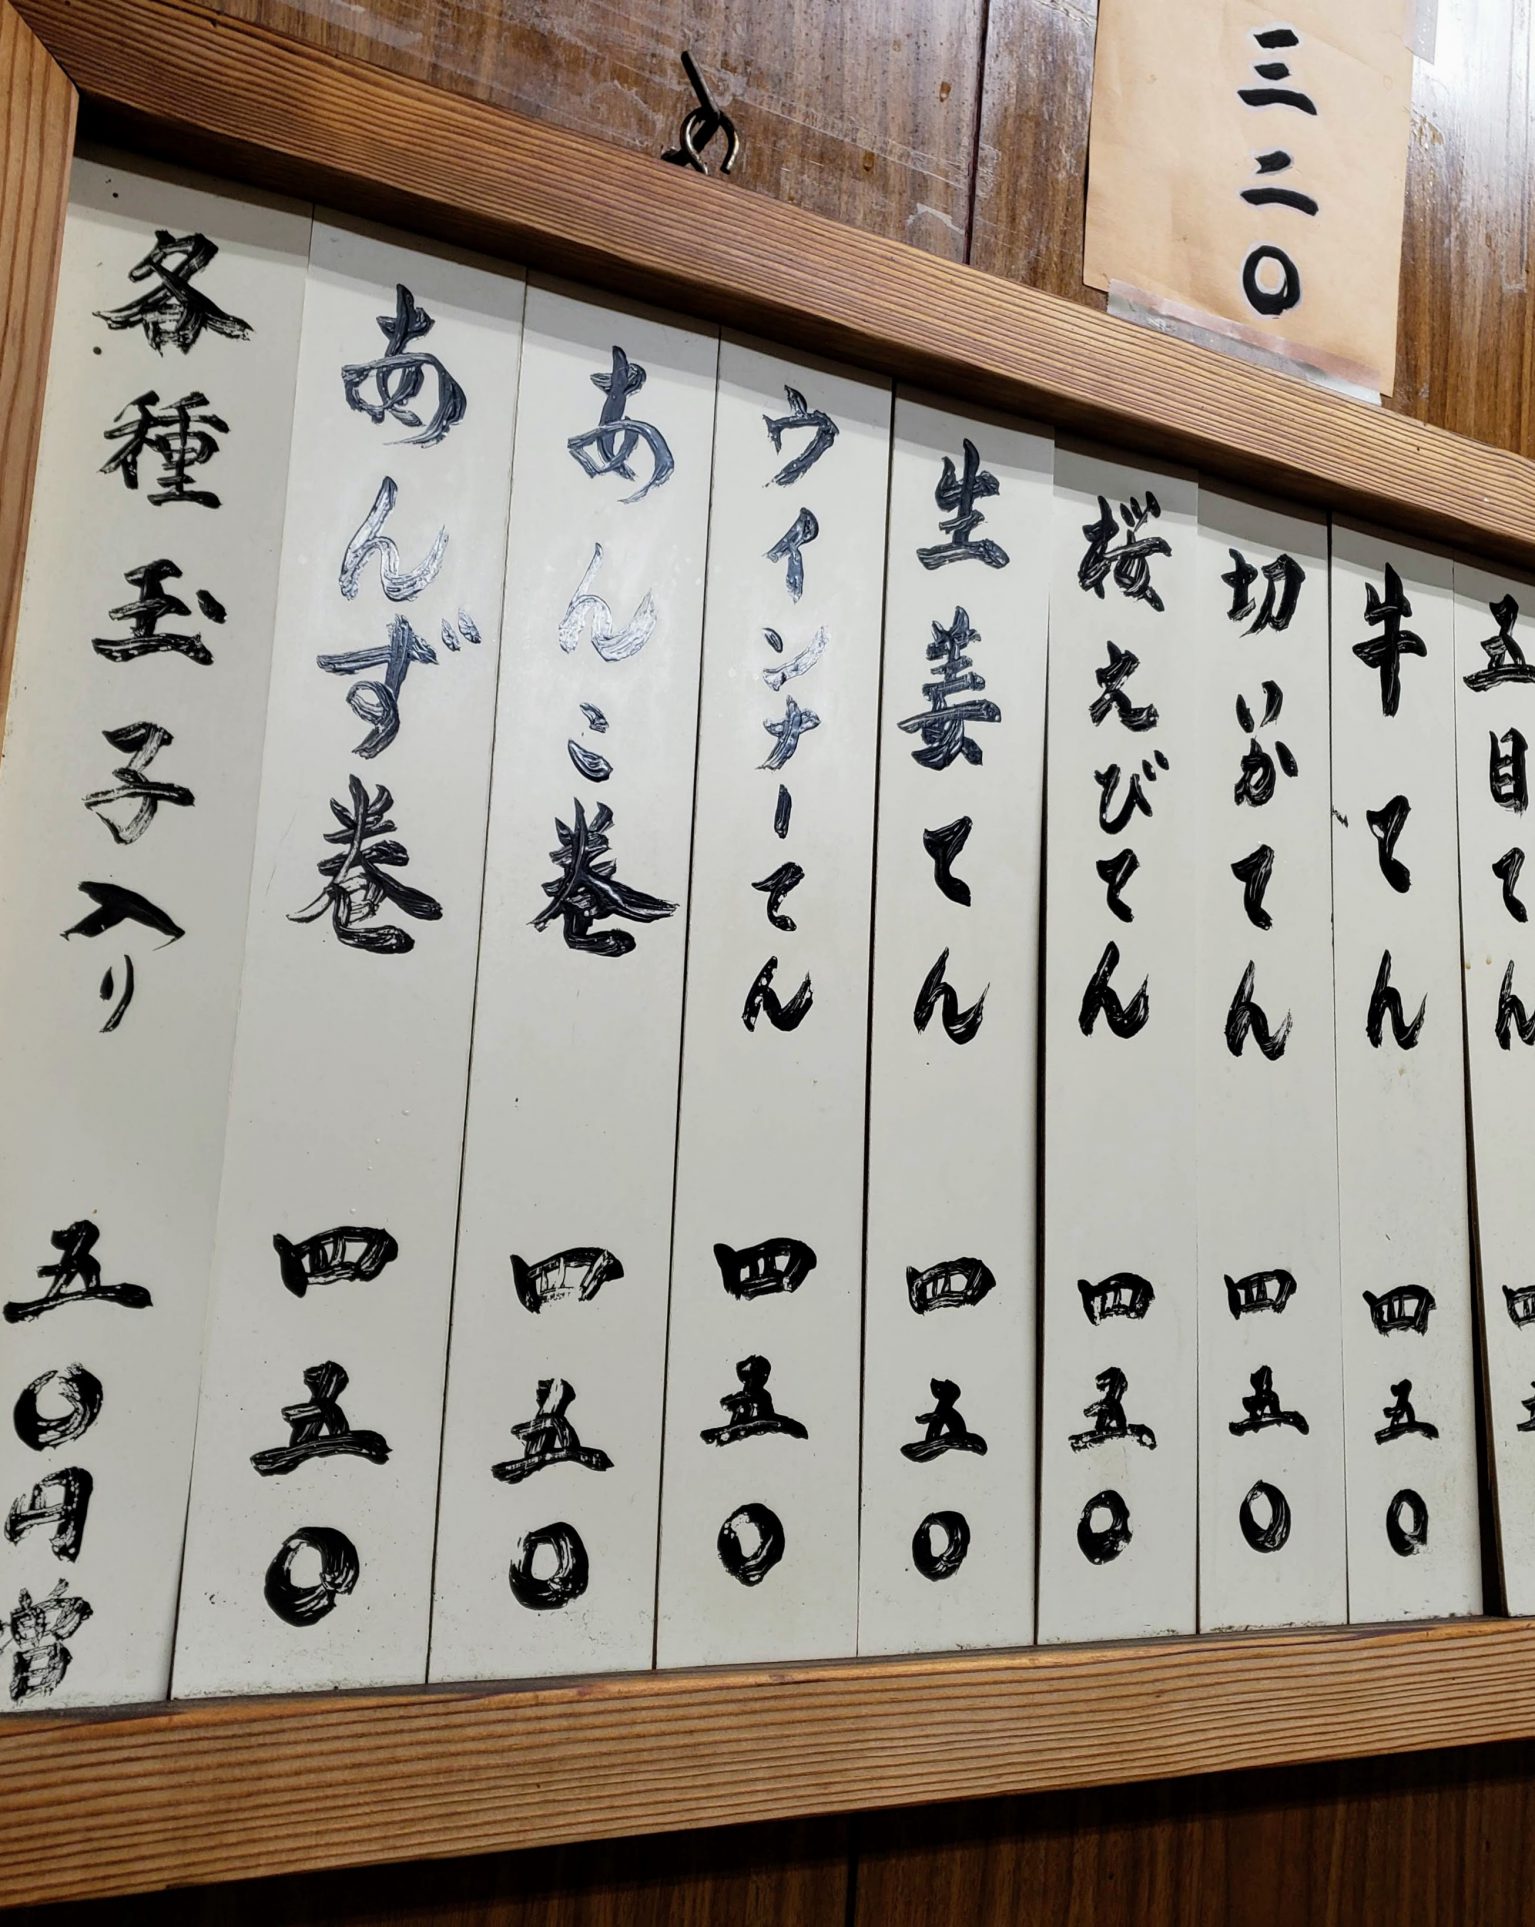 三二〇
五目てん 四五
牛てん 四五〇
切いかてん 四五〇
桜えびてん 四五〇
生姜てん 四五〇
ウインナーてん 四五〇
あんこ巻 四五〇
あんず巻 四五〇
各種玉子入り 五〇円増